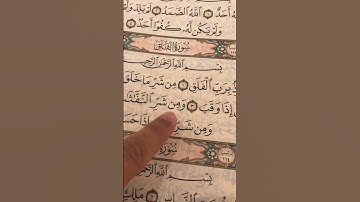 أَحَدٌ ۝ ٱللَّهُ ٱلصَّمَدُ ۝ لَمْ يَلِدْ
وَلَمْ يَكُن لَّهُۥ كُفُوًا أَحَدٌ
سُورَةُ الفَلَقِ
بِسْمِ ٱللَّهِ ٱلرَّحْمَٰنِ ٱلرَّحِيمِ
بِرَبِّ ٱلْفَلَقِ ۝ مِن شَرِّ مَا خَلَقَ
إِذَا وَقَبَ ۝ وَمِن شَرِّ ٱلنَّفَّٰثَٰ
وَمِن شَرِّ إِذَا حَسَ
سُورَةُ
بِسْمِ ٱللَّهِ ٱلرَّحْمَٰ
ٱلنَّاسِ ۝ مَلِكِ